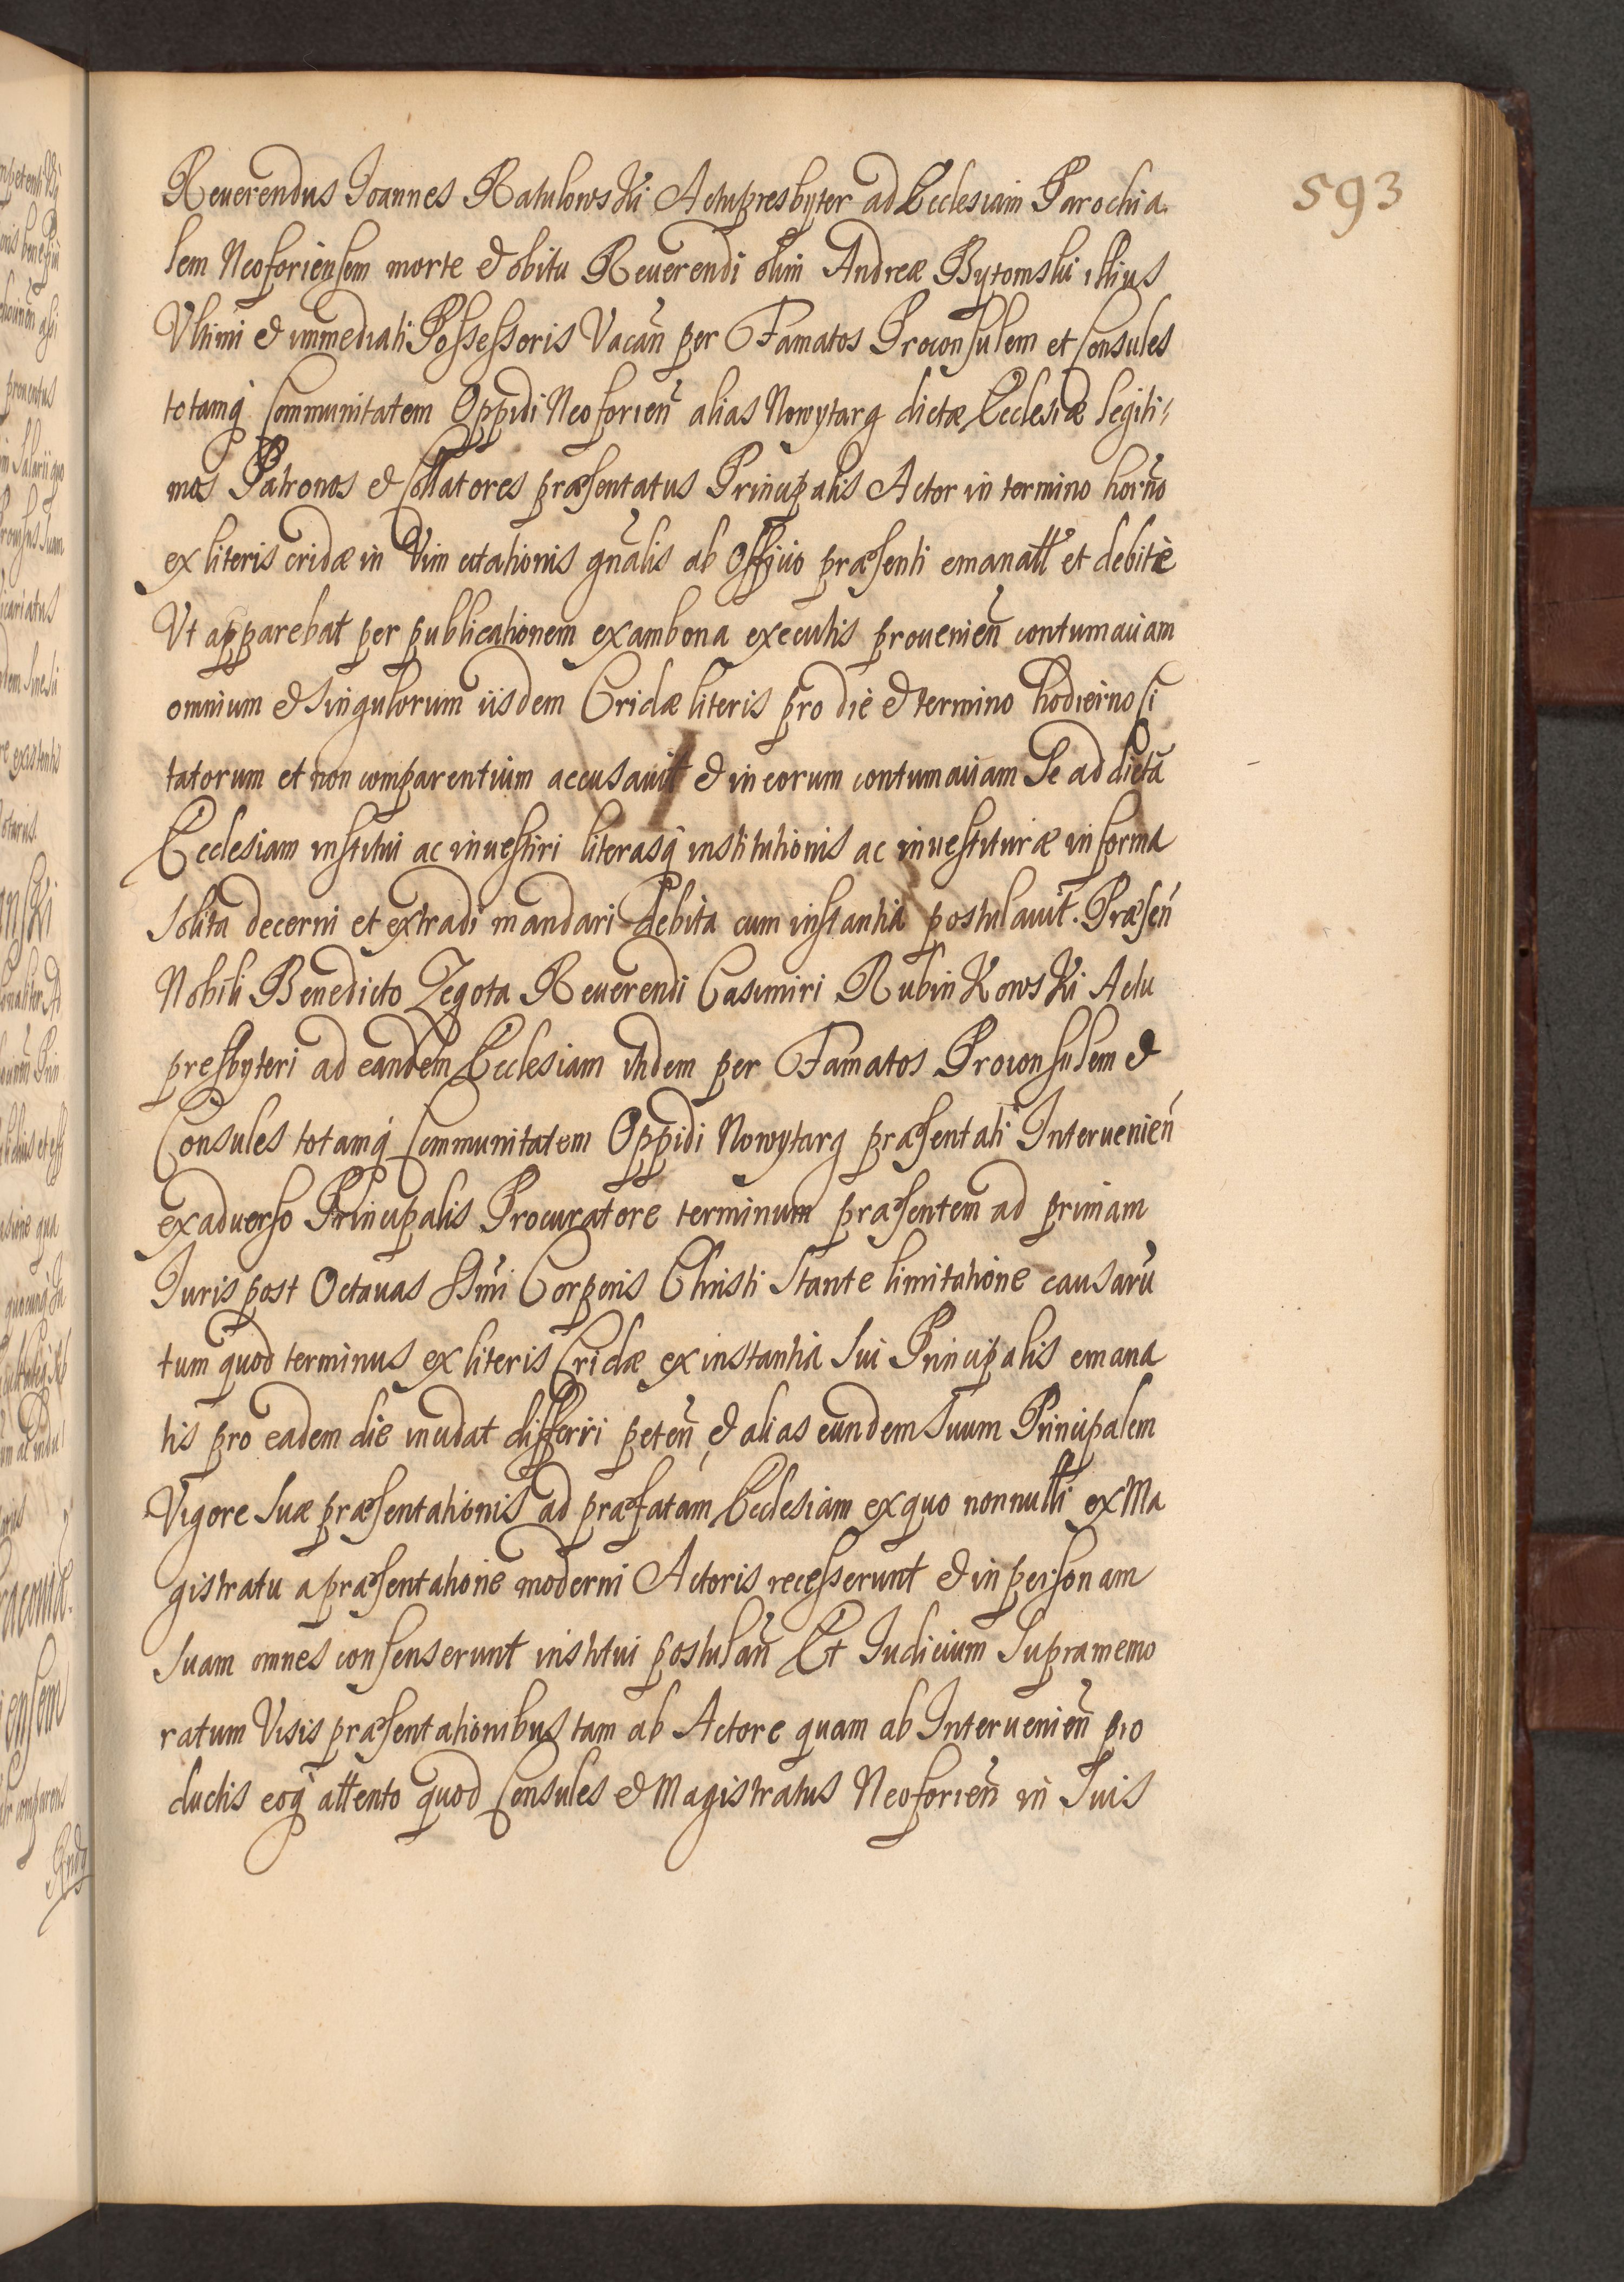 593
Reuerendus Joannes Ratulowski Actupresbyter ad Ecclesiam Parochia
lem Neoforiensem morte et obitu Reuerendi olim Andreæ Bytomski illius
Vltimi et immediati Possessoris Vacan̄ per Famatos Proconsulem et Consules
totamq́ Communitatem Oppidi Neoforien̄ alias Nowytarg dictæ Ecclesiæ legiti⸗
mos Patronos et Collatores præsentatus Principalis Actor in termino horn̄o
ex literis cridæ in Vim citationis gn̄alis ab Officio præsenti emanatt et debite
Vt apparebat per publicationem ex ambona executis prouenien̄ contumaciam
omnium et singulorum iisdem Cridæ literis pro die et termino hodierno Ci
tatorum et non comparentium accusauit et in eorum contumaciam Se ad dictā
Ecclesiam institui ac inuestiri literasq́ institutionis ac inuestituræ in forma
solita decerni et extradi mandari debita cum instantia postulauit. Præsen̄
Nobili Benedicto Zegota Reuerendi Casimiri Rubinkowski Actu
presbyteri ad eandem Ecclesiam itidem per Famatos Proconsulem et
Consules totamq́ Communitatem Oppidi Nowytarg præsentati Interuenien̄
ex aduerso Principalis Procuratore terminum præsentem ad primam
Iuris post Octauas SSmi Corporis Christi stante limitatione causarū
tum quod terminus ex literis Cridæ ex instantia sui Principalis emana
tis pro eadem die incidat differri peten̄ et alias eundem suum Principalem
Vigore suæ præsentationis ad præfatam Ecclesiam ex quo nonnulli ex Ma
gistratu a præsentatione moderni Actoris recesserunt et in personam
suam omnes consenserunt institui postulan̄ Et Iudicium supramemo
ratum Visis præsentationibus tam ab Actore quam ab Interuenien̄ pro
ductis eoq́ attento quod Consules et Magistratus Neoforien̄ in suis